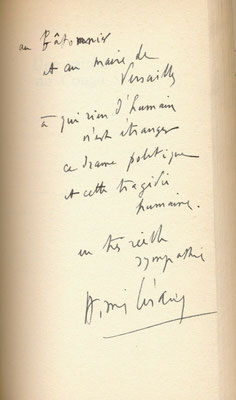 au Bâtonnier
et au maire de
Versailles
à qui rien d'humain
n'est étranger
ce drame politique
et cette tragédie
humaine.
en très réelle
sympathie